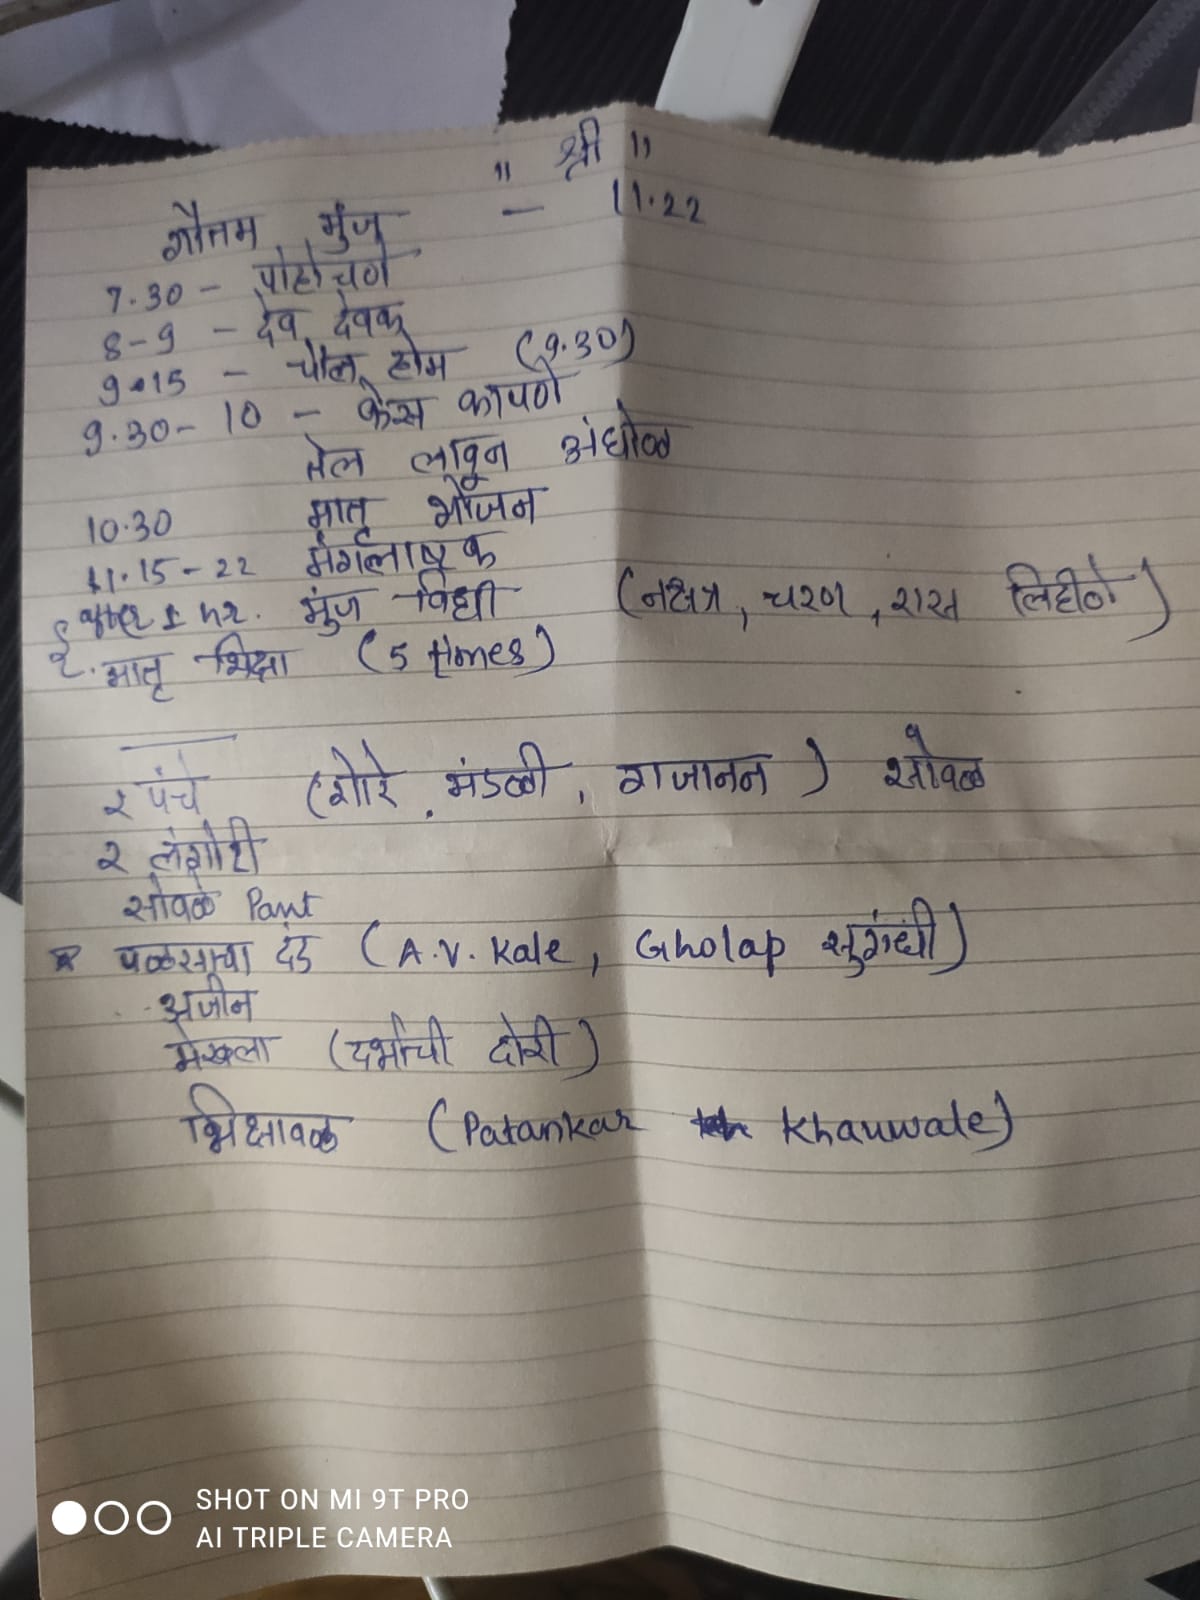 " श्री "
गौतम मुंज — 11.22
7.30 - पोहोचणे
8-9 - देव देवक
9.15 - चौल होम (9.30)
9.30-10 - केस कापणे
तेल लावून अंघोळ
10.30 मातृ भोजन
11.15-22 मंगलाष्टक
after 1 hr. मुंज विधी (नक्षत्र, चरण, रास लिहीणे)
मातृ भिक्षा (5 times)
२ पंचे (गोरे, मंडळी, गजानन) सोवळ
२ लंगोटी
सोवळे Pant
* पळसाचा दंड (A.V. Kale, Gholap सुगंधी)
अजीन
मेखला (दर्भाची दोरी)
भिक्षावळ (Patankar Khauwale)
SHOT ON MI 9T PRO
AI TRIPLE CAMERA